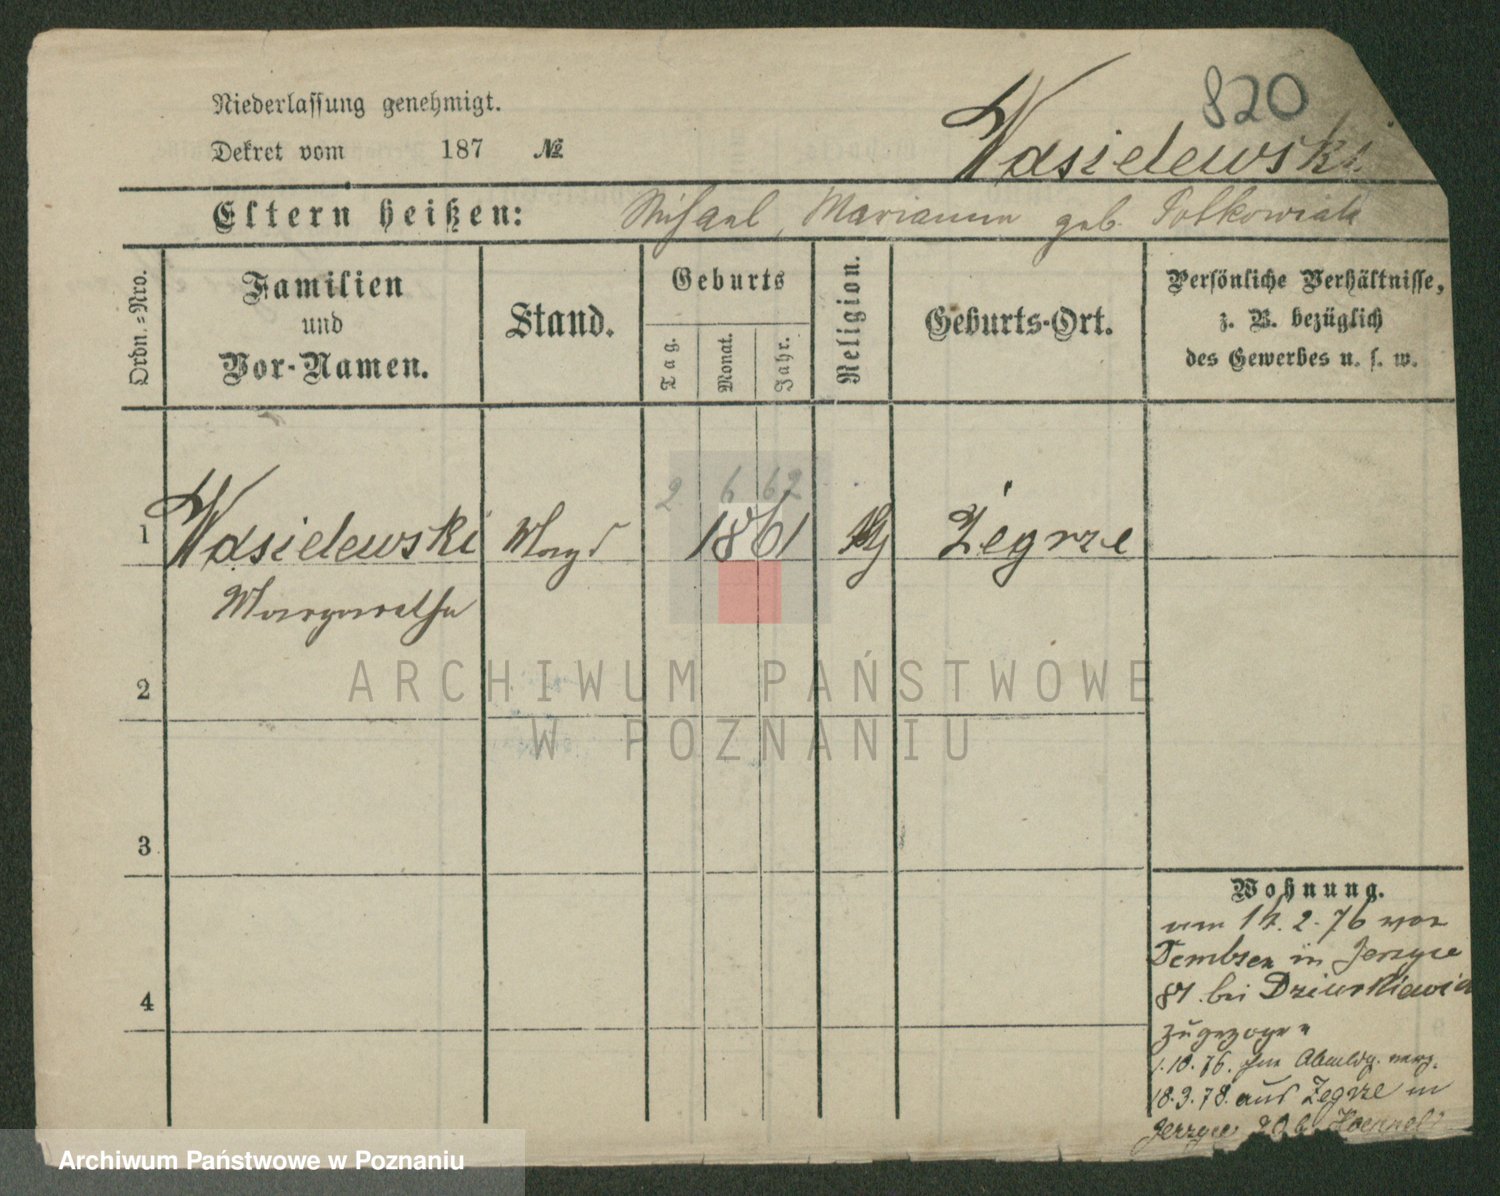 820
Niederlassung genehmigt.
Dekret vom 187 №
Wasielewski
Eltern heißen: Michael, Marianna geb. Polkowiak
Ordn.-Nro.
Familien
und
Vor-Namen.
Stand.
Geburts
Tag.
Monat.
Jahr.
Religion.
Geburts-Ort.
Persönliche Verhältnisse,
z. B. bezüglich
des Gewerbes u. s. w.
2 6 62
1 Wasielewski Magd 1861 Żegrze
Margarethe
2
3
4
Wohnung.
am 14.2.76 von
Dembsen in Jerzyce
87 bei Dziurkiewicz
zugezogen
1.10.76. Abmldg. verz.
18.3.78. aus Żegrze in
Jerzyce 20 b.
ARCHIWUM PAŃSTWOWE
W POZNANIU
Archiwum Państwowe w Poznaniu